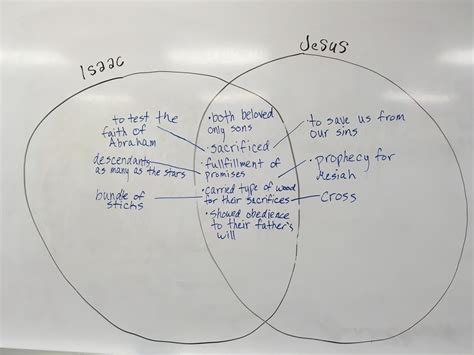 Isaac
Jesus
to test the
faith of
Abraham
descendants
as many as the stars
bundle of
sticks
•both beloved
only sons
•sacrificed
•fullfillment of
promises
•carried type of wood
for their sacrifices
•Showed obedience
to their father's
will
to save us from
our sins
prophecy for
Mesiah
Cross